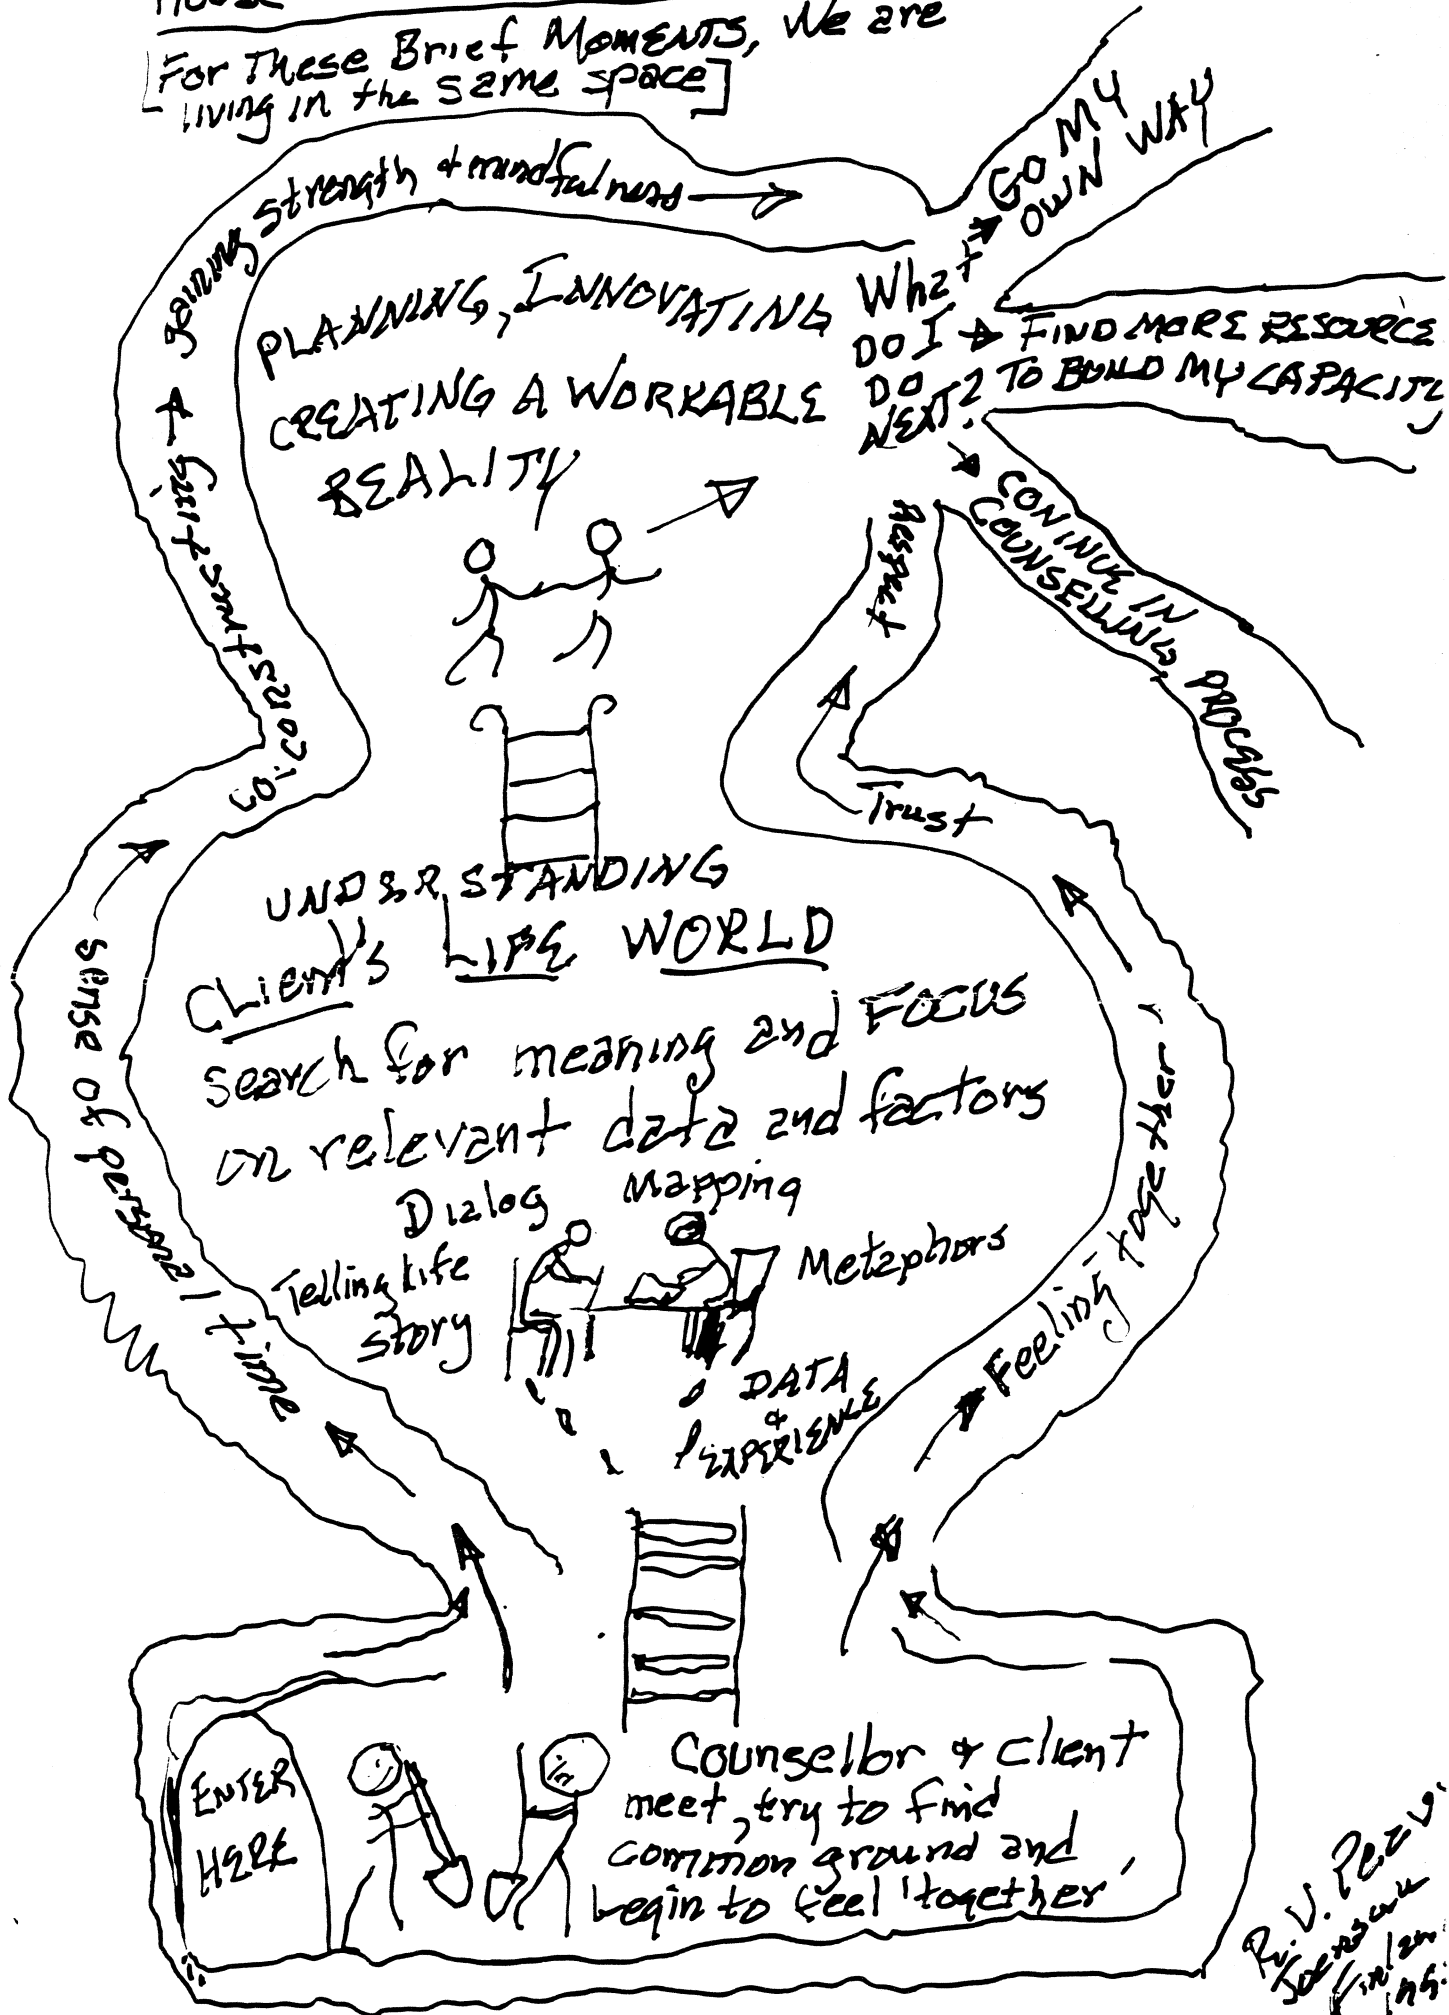 [For These Brief Moments, We are
living in the same space]
gaining strength & mindfulness
GO MY
OWN WAY
PLANNING, INNOVATING
CREATING A WORKABLE
REALITY
What
DO I
DO
NEXT?
FIND MORE RESOURCE
TO BUILD MY CAPACITY
CONINUE IN
COUNSELLING, PROCESS
Respect
Trust
Feeling-together
sense of personal time
UNDERSTANDING
CLient's LIFE WORLD
search for meaning and FOCUS
on relevant data and factors
Dialog Mapping
Telling Life
story
Metaphors
DATA
&
EXPERIENCE
ENTER
HERE
Counsellor & client
meet, try to find
common ground and
begin to feel 'together'
R. V. Peavy